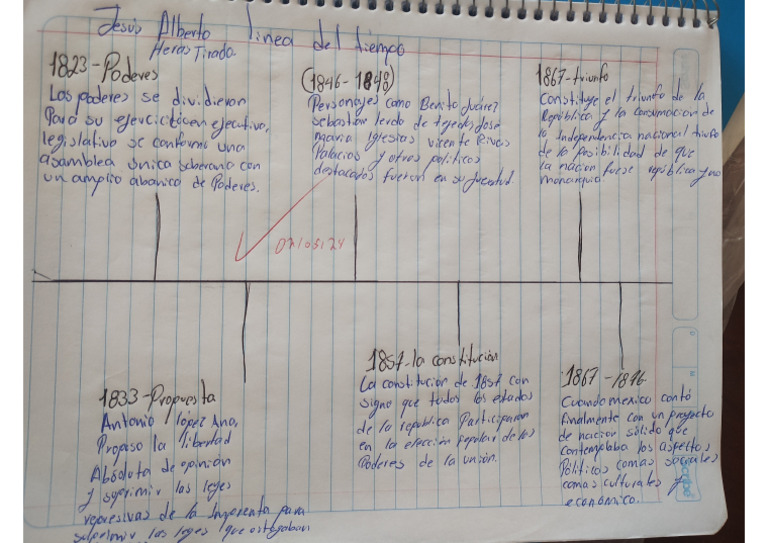 Jesús Alberto línea del tiempo
Heras Tirado.
1823-Poderes
Los poderes se dividieron
Para su ejercicio en ejecutivo,
legislativo se conformo una
asamblea unica soberana con
un amplio abanico de Poderes.
(1846-1848)
Personajes como Benito Juárez
sebastian lerdo de tejeda, José
maria Iglesias vicente Rivas
Palacios y otros politicos
destacados fueron en su Juventud.
1867-triunfo
Constituye el triunfo de la
República y la consumacion de
la Independencia nacional triunfo
de la posibilidad de que
la nacion fuese republica y no
monarquia
02/05/24
1833-Propuesta
Antonio lópez Ana,
Propuso la libertad
Absoluta de opinión
y suprimir las leyes
represivas de la Imprenta para
suprimir las leyes que estaban
1857-la constitución
La constitución de 1857 con
signo que todos los estados
de la republica Participaran
en la elección popular de los
Poderes de la unión.
1867-1876
Cuando mexico contó
finalmente con un proyecto
de nacion sólido que
contemplaba los aspectos
Políticos comas sociales
comas culturales y
económico.